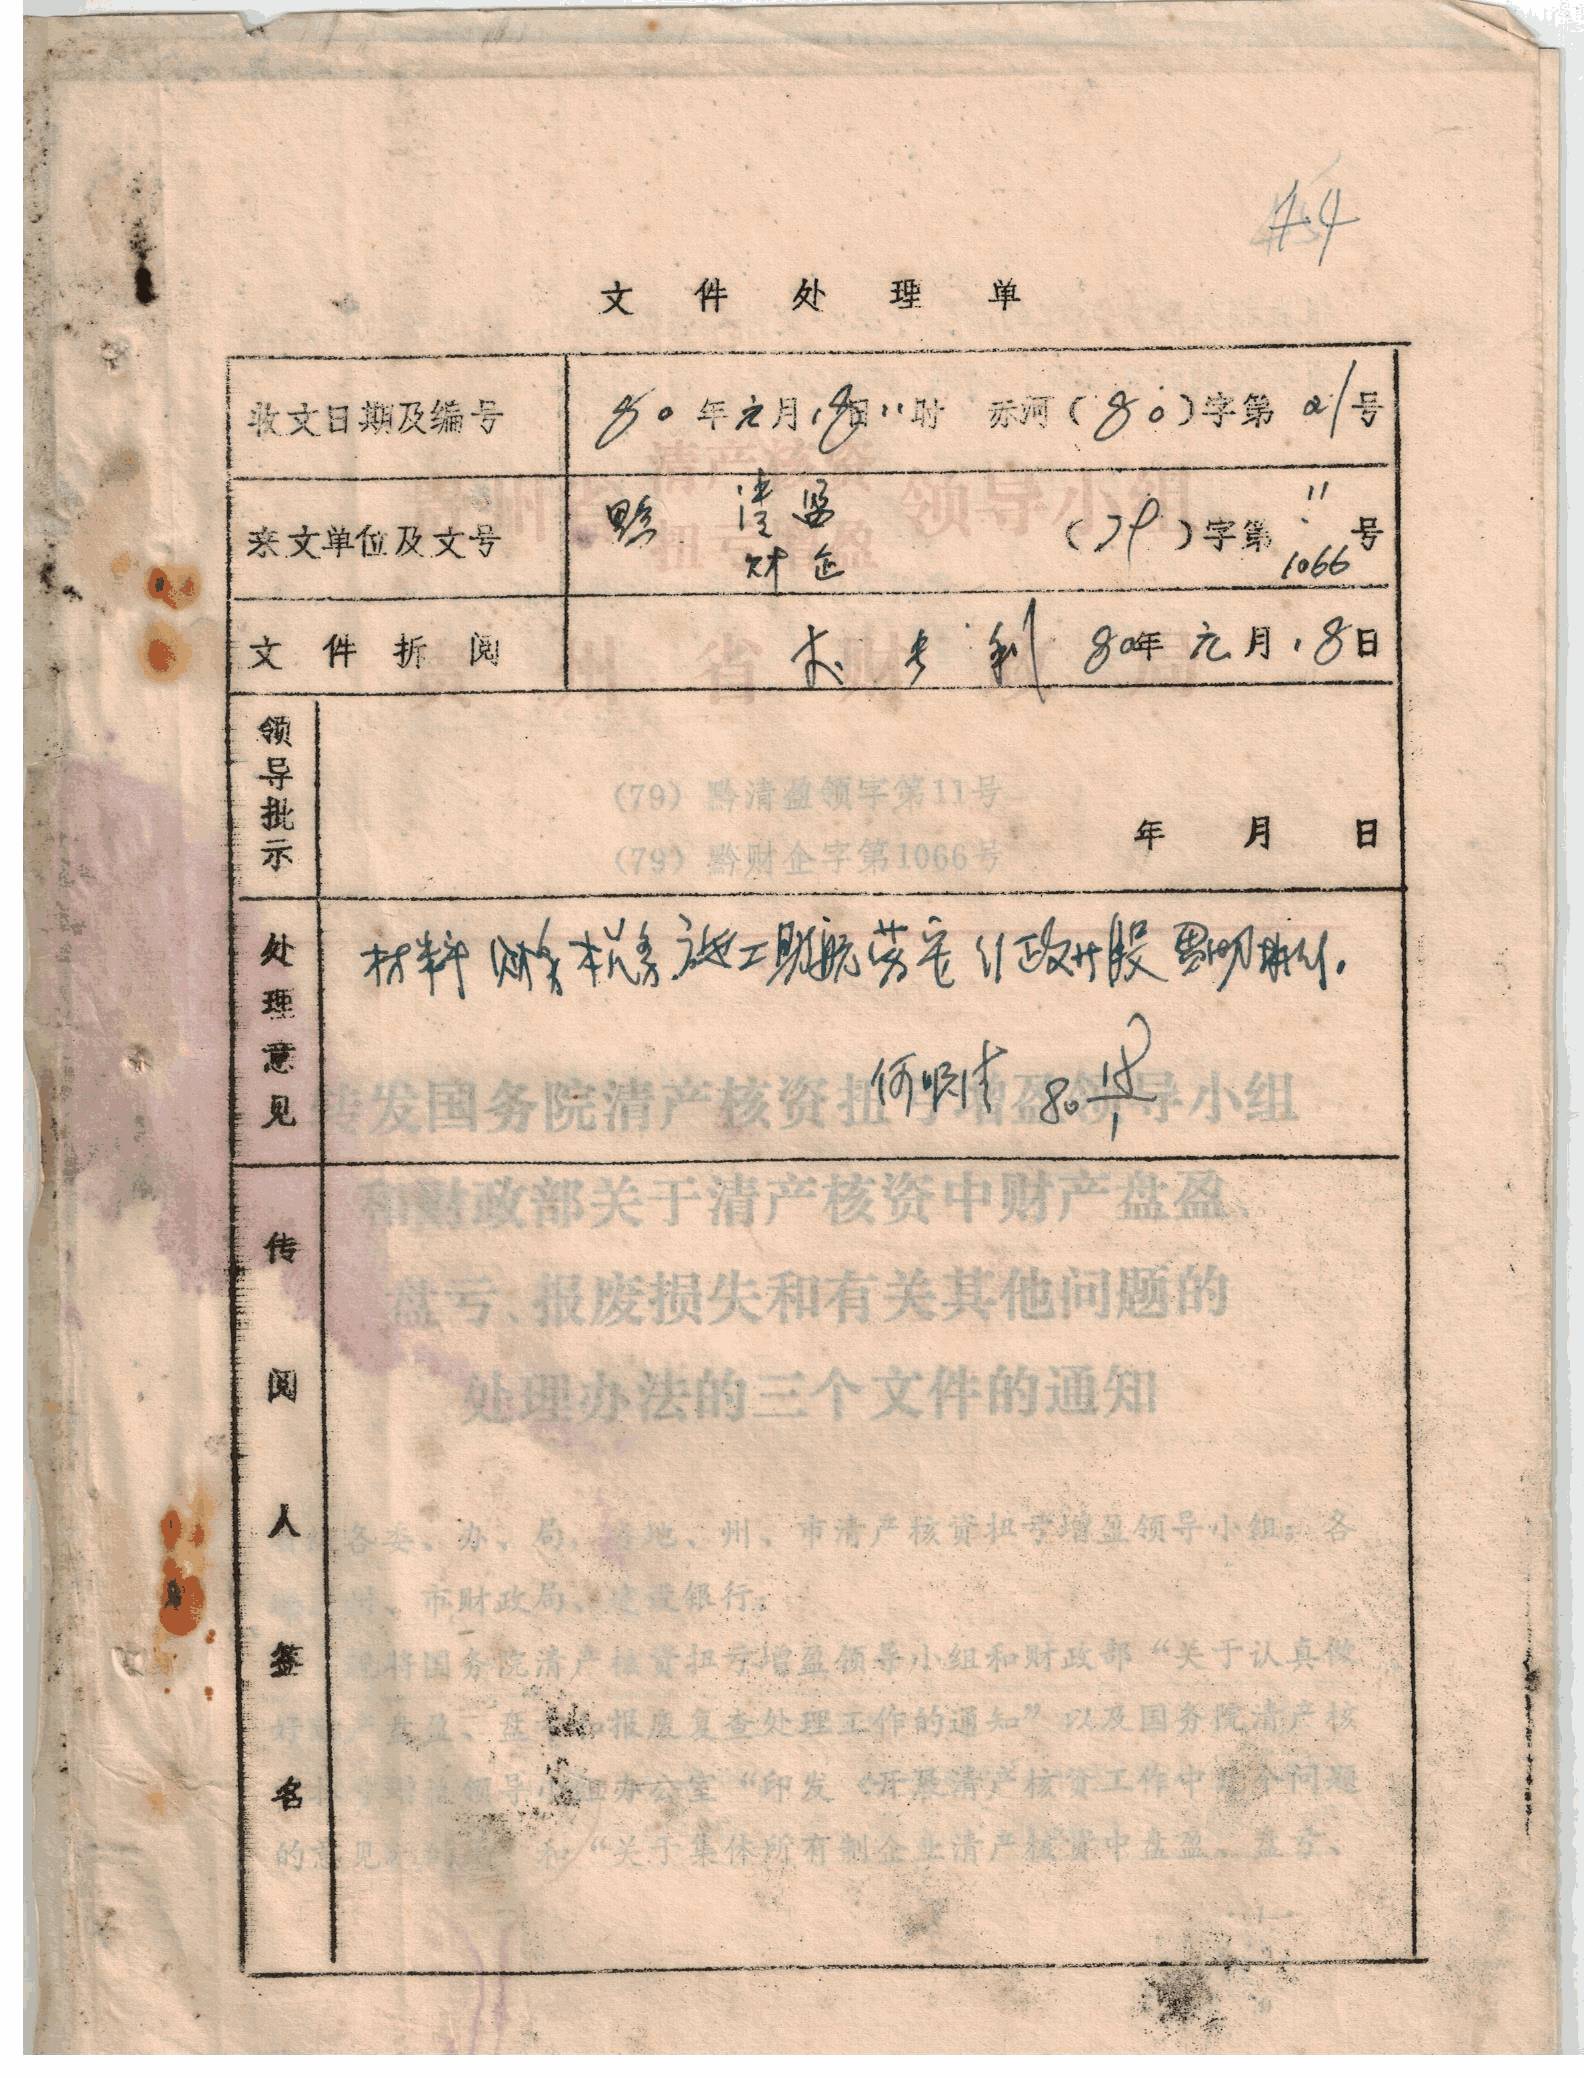 44
文件处理单
收文日期及编号 80年元月18日11时 赤河(80)字第21号
来文单位及文号 黔 清盈 财企 (79)字第 11 1066 号
文件折阅 80年元月18日
领导批示 年 月 日
(79)黔清盈领字第11号
(79)黔财企字第1066号
处理意见 材料 财务
何明清 80
转发国务院清产核资扭亏增盈领导小组
和财政部关于清产核资中财产盘盈、
盘亏、报废损失和有关其他问题的
处理办法的三个文件的通知
传阅人签名
各委、办、局,各地、州、市清产核资扭亏增盈领导小组;各
州、市财政局、建设银行:
现将国务院清产核资扭亏增盈领导小组和财政部“关于认真做
好财产盘盈、盘亏和报废复查处理工作的通知”以及国务院清产核
资扭亏增盈领导小组办公室“印发《开展清产核资工作中几个问题
的意见》的通知”和“关于集体所有制企业清产核资中盘盈、盘亏、